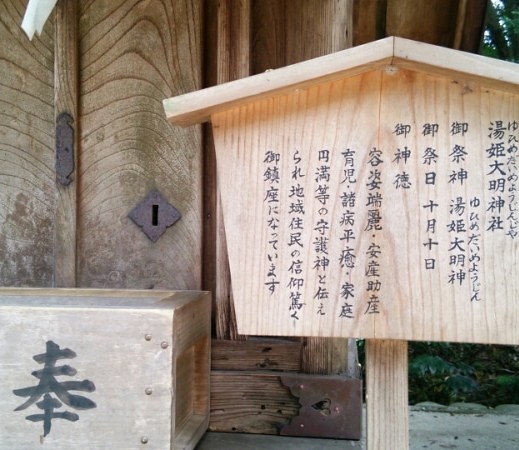 ゆひめだいめようじんじや
湯姫大明神社
ゆひめだいめようじん
御祭神 湯姫大明神
御祭日 十月十日
御神徳
容姿端麗・安産助産
育児・諸病平癒・家庭
円満等の守護神と伝え
られ地域住民の信仰篤く
御鎮座になっています
奉